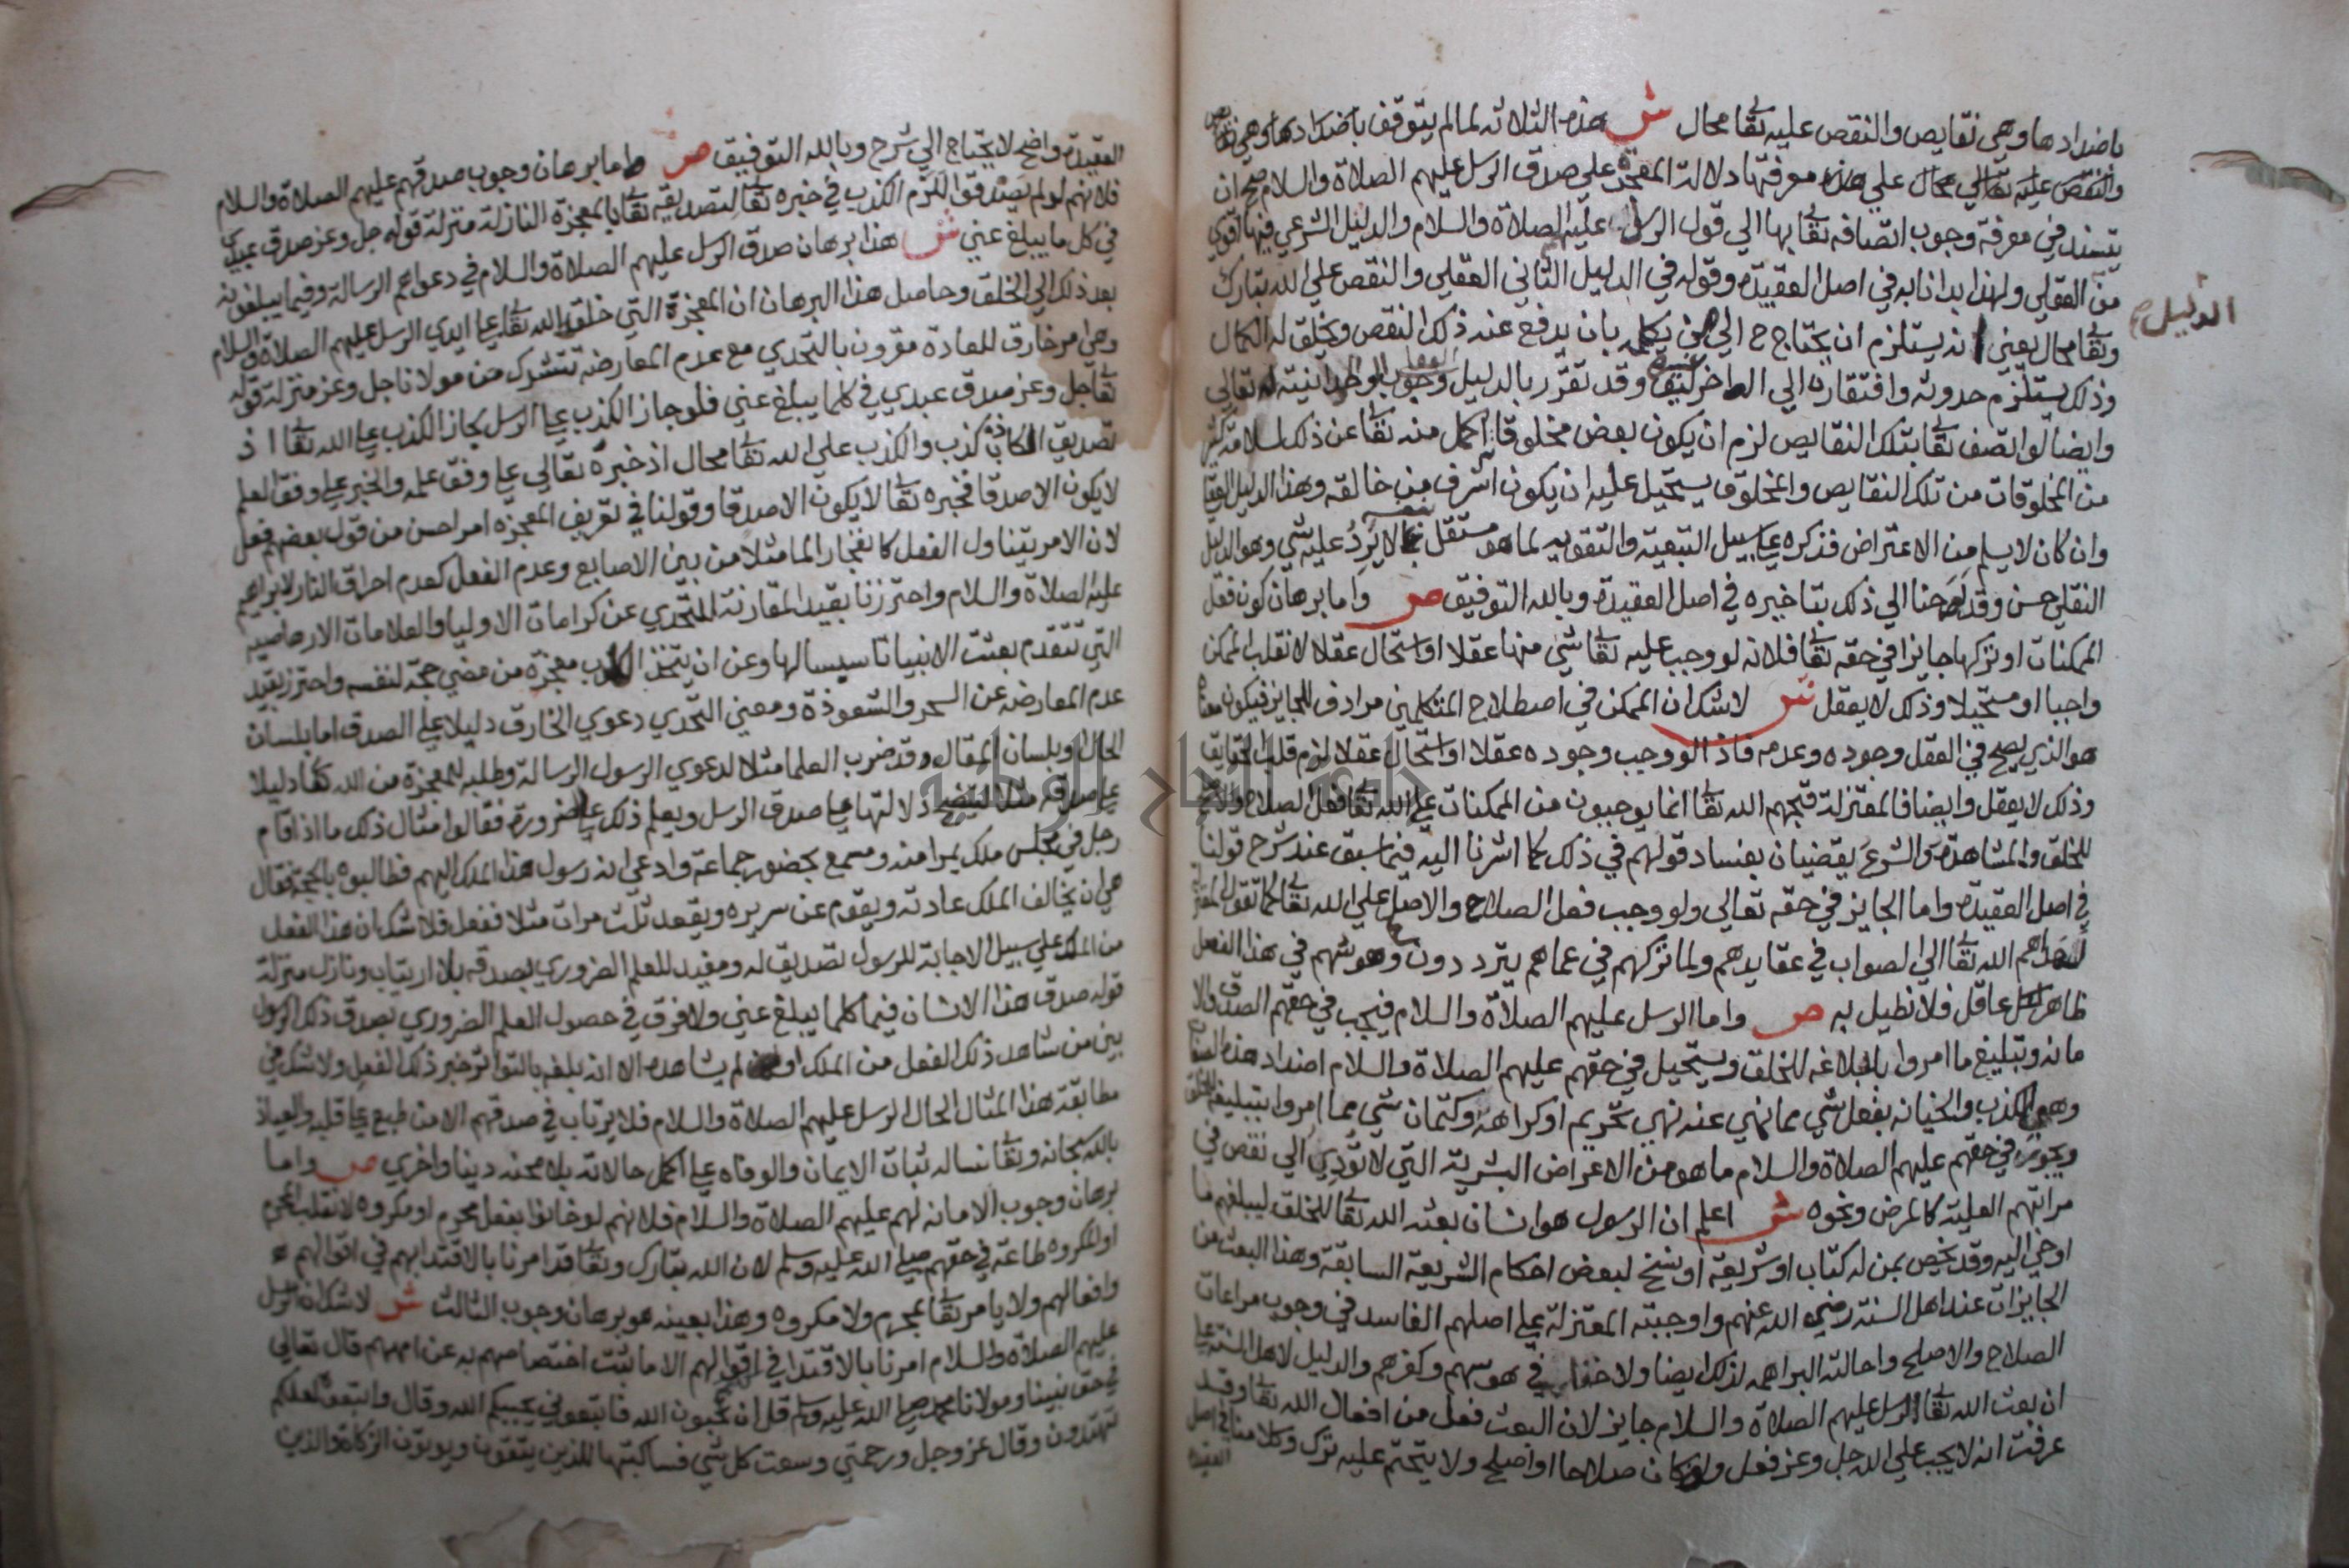 باضدادها وهي نقايص والنقص عليه تعا محال ش هذه الثلاثة لما لم يتوقف باضدادها وهي نقايص
والنقص عليه تعالي محال علي هذه معرفتها دلالة المعجزة علي صدق الرسل عليهم الصلاة والسلام صح ان
يستند في معرفة وجوب اتصافه تعا بها الي قول الرسل عليهم الصلاة والسلام والدليل الشرعي فيها اقوي
من العقلي ولهذا بدانا به في اصل العقيدة وقوله في الدليل الثاني العقلي والنقص علي الله تبارك
الدليل
وتعا محال يعني انه يستلزم ان يحتاج ح الي من يكمله بان يدفع عنه ذلك النقص ويخلق له الكمال
وذلك يستلزم حدوثه وافتقاره الي اله اخر وقد تقرر بالدليل وجوب الوحدانيته له تعالي
وايضا لو اتصف تعا بتلك النقايص لزم ان يكون بعض مخلوقاته اكمل منه تعا عن ذلك لسلامة كثير
من المخلوقات من تلك النقايص والمخلوق يستحيل عليه ان يكون اشرف من خالقه وهذا الدليل العقلي
وان كان لا يسلم من الاعتراض فذكره علي سبيل التبعية والتقويه لما هو مستقل بنفسه لا يرد عليه شي وهو الدليل
النقلي حسن وقد لوحنا الي ذلك بتاخيره في اصل العقيدة وبالله التوفيق ص واما برهان كون فعل
الممكنات او تركها جايزا في حقه تعا فلانه لو وجب عليه تعا شي منها عقلا او استحال عقلا لانقلب الممكن
واجبا او مستحيلا وذلك لا يعقل ش لا شك ان الممكن في اصطلاح المتكلمين مرادف للجايز فيكون معناه
هو الذي يصح في العقل وجوده وعدمه فاذا لو وجب وجوده عقلا او استحال عقلا لزم قلب الحقايق
وذلك لا يعقل وايضا فالمعتزلة قبحهم الله تعا انما يوجبون من الممكنات علي الله تعا فعل الصلاح والاصلح
للخلق والمشاهدة والشرع يقضيان بفساد قولهم في ذلك كما اشرنا اليه فيما سبق عند شرح قولنا
في اصل العقيدة واما الجايز في حقه تعالي ولو وجب فعل الصلاح والاصلح علي الله تعا كما تقول المعتزلة
لهداهم الله تعا الي الصواب في عقايدهم ولما تركهم في عماهم يترددون وهوسهم في هذا الفعل
ظاهر لكل عاقل فلا نطيل به ص واما الرسل عليهم الصلاة والسلام فيجب في حقهم الصدق والا
مانه وتبليغ ما امروا بابلاغه للخلق ويستحيل في حقهم عليهم الصلاة والسلام اضداد هذه الصفات
وهي الكذب والخيانه بفعل شي مما نهي عنه نهي تحريم او كراهة وكتمان شي مما امروا بتبليغه للخلق
ويجوز في حقهم عليهم الصلاة والسلام ما هو من الاعراض البشرية التي لا تؤدي الي نقص في
مراتبهم العلية كالمرض ونحوه ش اعلم ان الرسول هو انسان بعثه الله تعا للخلق ليبلغهم ما
اوحي اليه وقد يخص بمن له كتاب او شريعة او نسخ لبعض احكام الشريعة السابقة وهذا البعث من
الجايزات عند اهل السنة رضي الله عنهم واوجبته المعتزلة علي اصلهم الفاسد في وجوب مراعات
الصلاح والاصلح واحالته البراهمه لذلك ايضا ولا خفا في هوسهم وكفرهم والدليل لاهل السنة علي
ان بعث الله تعا الرسل عليهم الصلاة والسلام جايز لان البعث فعل من افعال الله تعا وقد
عرفت انه لا يجب علي الله جل وعز فعل ولو كان صلاحا او اصلح ولا يتحتم عليه ترك وكلامنا في اصل
العقيدة
العقيدة واضح لا يحتاج الي شرح وبالله التوفيق ص واما برهان وجوب صدقهم عليهم الصلاة والسلام
فلانهم لو لم يصدقوا للزم الكذب في خبره تعا لتصديقه تعا بالمعجزة النازلة منزلة قوله جل وعز صدق عبدي
في كل ما يبلغ عني ش هذا برهان صدق الرسل عليهم الصلاة والسلام في دعواهم الرسالة وفيما يبلغونه
بعد ذلك الي الخلق وحاصل هذا البرهان ان المعجزة التي خلق الله تعا علي ايدي الرسل عليهم الصلاة والسلام
وهي امر خارق للعادة مقرون بالتحدي مع عدم المعارضه تتنزل من مولانا جل وعز منزلة قوله
تعا جل وعز صدق عبدي في كلما يبلغ عني فلو جاز الكذب علي الرسل لجاز الكذب علي الله تعا اذ
تصديق الكاذب كذب والكذب علي الله تعا محال اذ خبره تعالي علي وفق علمه والخبر علي وفق العلم
لا يكون الا صدقا فخبره تعا لا يكون الا صدقا وقولنا في تعريف المعجزة امر احسن من قول بعضهم فعل
لان الامر يتناول الفعل كانفجار الما مثلا من بين الاصابع وعدم الفعل كعدم احراق النار لابراهيم
عليه الصلاة والسلام واحترزنا بقيد المقارنة للتحدي عن كرامات الاوليا والعلامات الارهاصيه
التي تتقدم بعثة الانبيا تاسيسا لها وعن ان يتخذ الكاذب معجزة من مضي حجة لنفسه واحترز بقيد
عدم المعارضه عن السحر والشعوذة ومعني التحدي دعوي الخارق دليلا علي الصدق اما بلسان
الحال او بلسان المقال وقد ضرب العلما مثلا لدعوي الرسول الرسالة وطلبه للمعجزة من الله تعا دليلا
علي صدقه مثلا ليتضح دلالتها علي صدق الرسل ويعلم ذلك علي الضرورة فقالوا مثال ذلك ما اذا قام
رجل في مجلس ملك بمرا منه ومسمع بحضور جماعة وادعي انه رسول هذا الملك اليهم فطالبوه بالحجة فقال
هي ان يخالف الملك عادته ويقوم عن سريره ويقعد ثلث مرات مثلا ففعل فلا شك ان هذا الفعل
من الملك علي سبيل الاجابة للرسول تصديق له ومفيد للعلم الضروري بصدقه بلا ارتياب ونازل منزلة
قوله صدق هذا الانسان فيما كلما يبلغ عني ولا فرق في حصول العلم الضروري بصدق ذلك الرسول
بين من شاهد ذلك الفعل من الملك او لم يشاهده الا انه بلغه بالتواتر خبر ذلك الفعل ولا شك في
مطابقة هذا المثال لحال الرسل عليهم الصلاة والسلام فلا يرتاب في صدقهم الا من طبع علي قلبه والعياذ
بالله سبحانه وتعا نساله ثبات الايمان والوفاه علي اكمل حالاته بلا محنه دينا واخري ص واما
برهان وجوب الامانه لهم عليهم الصلاة والسلام فلانهم لو خانوا بفعل محرم او مكروه لانقلب المحرم
او المكروه طاعة في حقهم صلي الله عليه وسلم لان الله تبارك وتعا قد امرنا بالاقتدا بهم في اقوالهم
وافعالهم ولا يامر تعا بمحرم ولا مكروه وهذا بعينه هو برهان وجوب الثالث ش لا شك ان الرسل
عليهم الصلاة والسلام امرنا بالاقتدا في اقوالهم الا ما ثبت اختصاصهم به عن اممهم قال تعالي
في حق نبينا ومولانا محمد صلي الله عليه وسلم قل ان كنتم تحبون الله فاتبعوني يحببكم الله وقال واتبعوه لعلكم
تهتدون وقال عز وجل ورحمتي وسعت كل شي فساكتبها للذين يتقون ويوتون الزكاة والذين